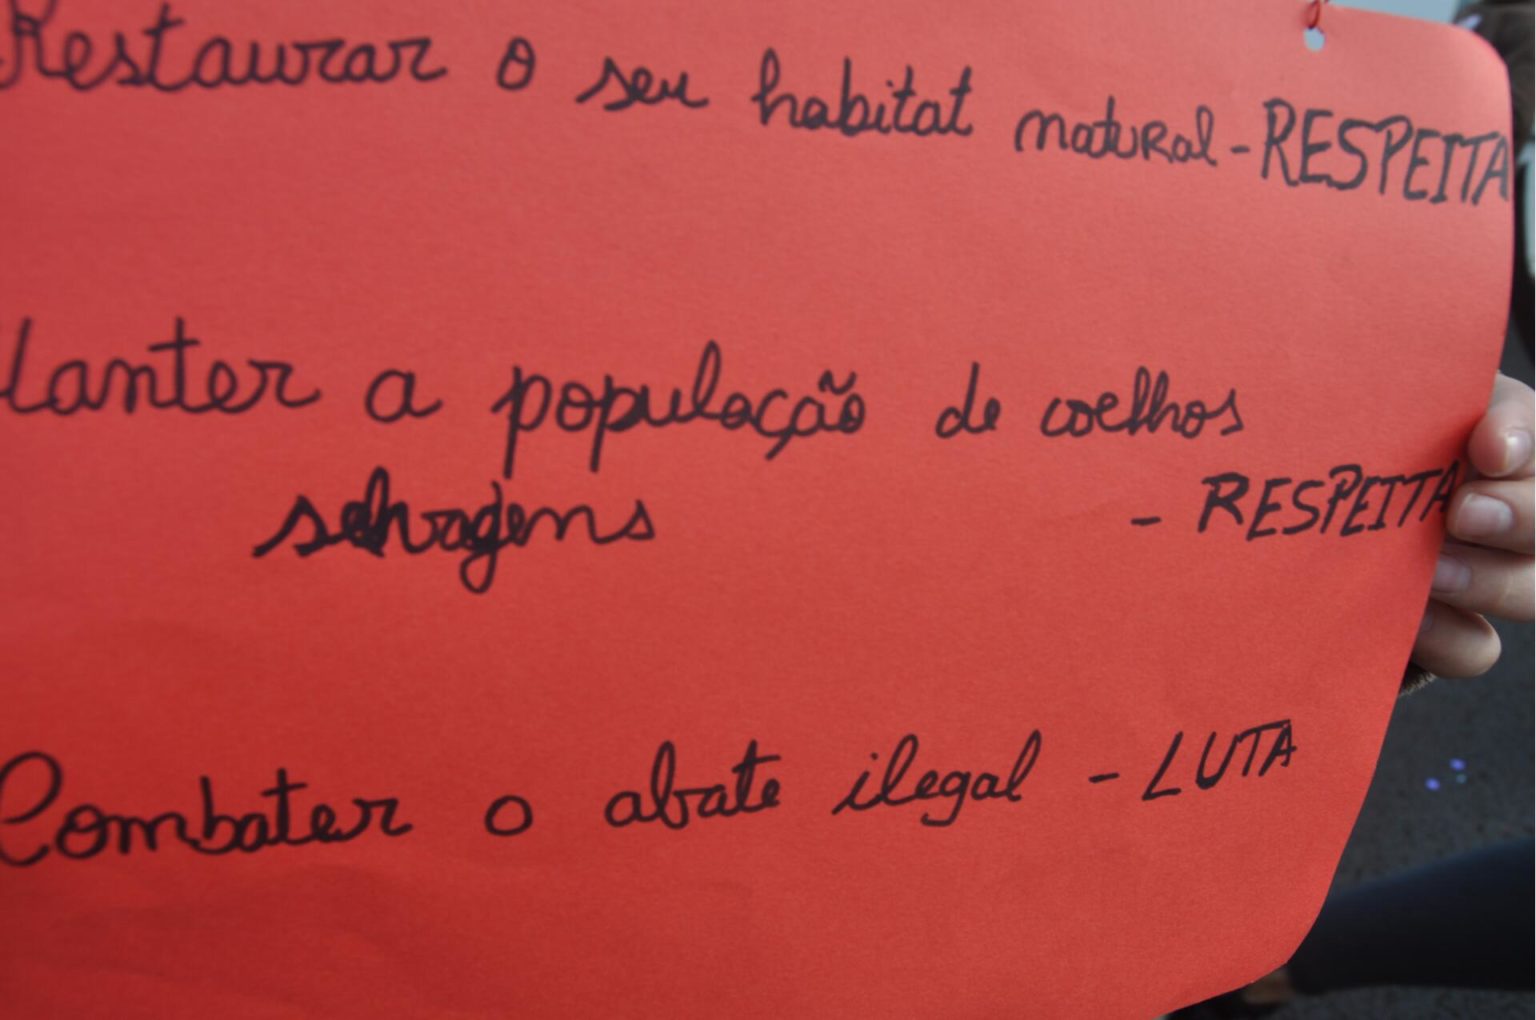 Restaurar o seu habitat natural - RESPEITA
Manter a população de coelhos
selvagens - RESPEITA
Combater o abate ilegal - LUTA